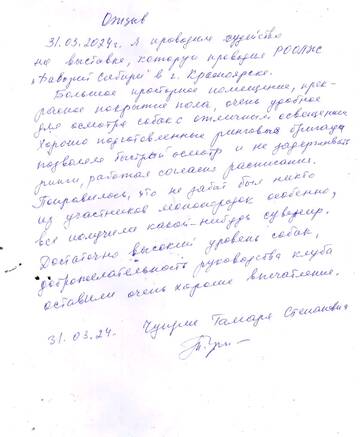 Отзыв
31.03.2024г. я проводила судейство
на выставке, которую проводил РООЛЖС
"Фаворит Сибири" в г. Красноярске.
Большое просторное помещение, прек-
расное покрытие пола, очень удобное
для осмотра собак с отличным освещением
Хорошо подготовленные ринговая бригада
позволяла быстрый осмотр и не задерживать
ринги, работая согласно расписания.
Понравилось, что не забыт был никто
из участников монопородок особенно,
все получили какой-нибудь сувенир.
Достаточно высокий уровень собак,
доброжелательность руководства клуба
оставили очень хорошие впечатление.
31.03.24. Тамара Степановна